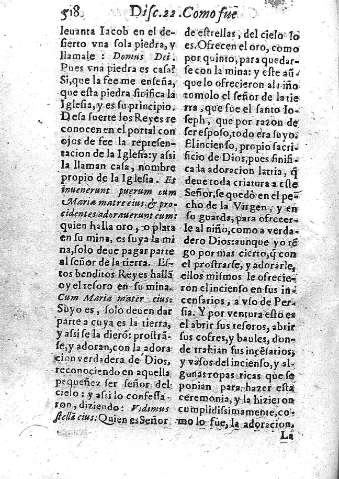 518.
Disc. 22. Como fue
leuanta Iacob en el de-
sierto vna sola piedra, y
llamale: Domus Dei.
Pues vna piedra es casa?
Si, que la fee me enseña,
que esta piedra sinifica la
Iglesia, y es su principio.
Desa suerte los Reyes re
conocen en el portal con
ojos de fee la represen-
tacion de la Iglesia: y assi
la llaman casa, nombre
propio de la Iglesia. Et
inuenerunt puerum cum
Maria matre eius, & pro
cidentes adorauerunt eum:
quien halla oro, o plata
en su mina, es suya la mi
na, solo deue pagar parte
al señor de la tierra. Es-
tos benditos Reyes hallã
oy el tesoro en su mina.
Cum Maria mater eius:
Suyo es, solo deuen dar
parte a cuya es la tierra,
y assi se la dierõ: prostrã-
se, y adoran, con la adora
cion verdadera de Dios,
reconociendo en aquella
pequeñez ser señor del
cielo: y assi lo confessa-
ron, diziendo: Vidimus
stellã eius: Quien es Señor
de estrellas, del cielo lo
es. Ofrecen el oro, como
por quinto, para quedar-
se con la mina: y este aũ-
que lo ofrecieron al niño
tomolo el señor de la tier
ra, que fue el santo Io-
seph, que por razon de
ser esposo, todo era suyo.
El incienso, propio sacri-
ficio de Dios, pues sinifi-
ca la adoracion latria, q̃
deue toda criatura a este
Señor, se quedò en el pe-
cho de la Virgen, y en
su guarda, para ofrecer-
le al niño, como a verda-
dero Dios: aunque yo tẽ-
go por mas cierto, q̃ con
el prostrarse, y adorarle,
ellos mismos le ofrecie-
ron el incienso en sus in-
censarios, a vso de Per-
sia. Y por ventura esto es
el abrir sus tesoros, abrir
sus cofres, y baules, don-
de trahian sus incẽsarios,
y vasos del incienso, y al-
gunas ropas ricas que se
ponian para hazer esta
ceremonia, y la hizieron
cumplidissimamente, co-
mo lo fue, la adoracion,
La